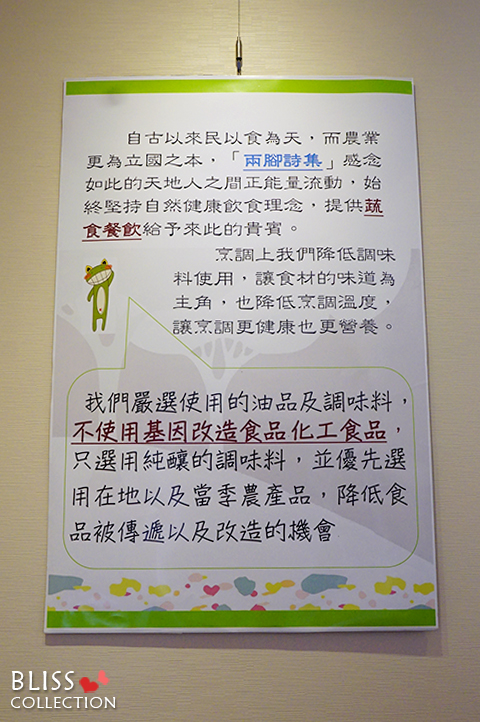 自古以來民以食為天，而農業
更為立國之本，「兩腳詩集」感念
如此的天地人之間正能量流動，始
終堅持自然健康飲食理念，提供蔬
食餐飲給予來此的貴賓。
烹調上我們降低調味
料使用，讓食材的味道為
主角，也降低烹調溫度，
讓烹調更健康也更營養。
我們嚴選使用的油品及調味料，
不使用基因改造食品化工食品，
只選用純釀的調味料，並優先選
用在地以及當季農產品，降低食
品被傳遞以及改造的機會
BLISS
COLLECTION